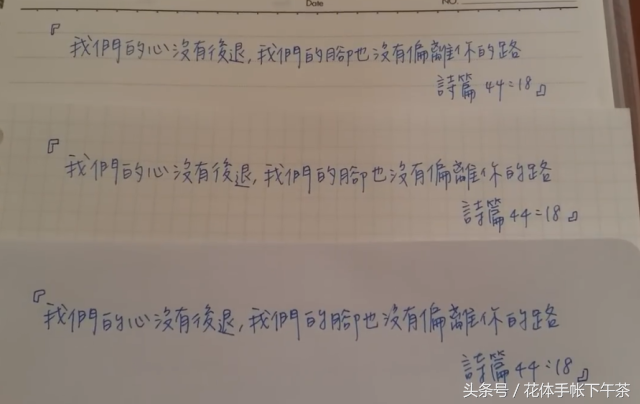 Date
NO.
『我們的心沒有後退,我們的腳也沒有偏離你的路
詩篇 44:18』
『我們的心沒有後退,我們的腳也沒有偏離你的路
詩篇 44:18』
『我們的心沒有後退,我們的腳也沒有偏離你的路
詩篇 44:18』
头条号 / 花体手帐下午茶